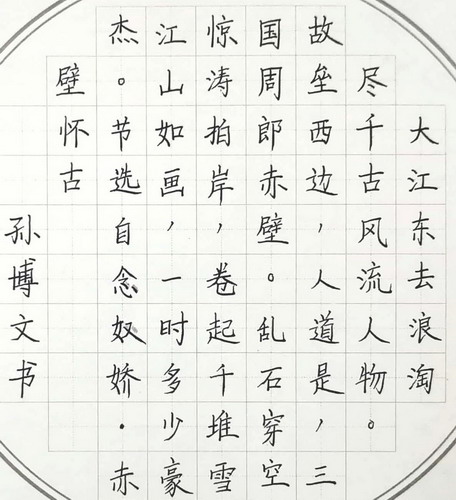 大江东去浪淘
尽千古风流人物。
故垒西边，人道是，三
国周郎赤壁。乱石穿空
惊涛拍岸，卷起千堆雪
江山如画，一时多少豪
杰。节选自念奴娇·赤
壁怀古
孙博文书